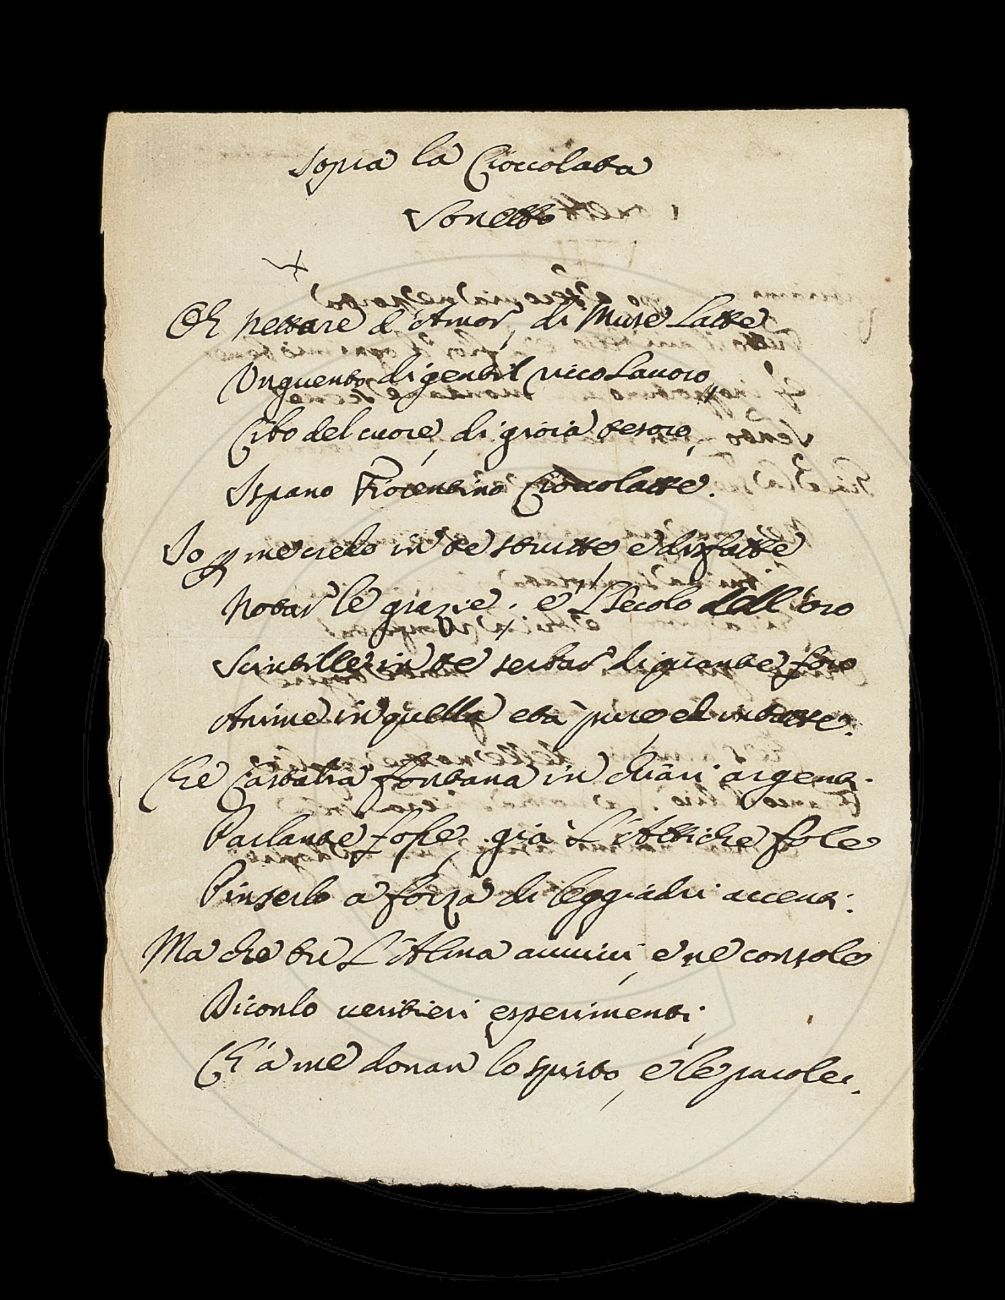 Sopra la Cioccolata
Sonetto
Oh Nettare d'Amor, di Muse Latte
Unguento di gentil ricco Lavoro,
Cibo del cuore, di gioia tesoro,
Ispano Fiorentino Cioccolatte.
Io p me credo in te strutte e disfatte
Notar le grazie, e 'l Secolo dell'oro
Scintille in te serbar di quante foro
Anime in quella età pure ed intatte.
Che Castalia fontana in chiari argenti
Parlante fosse, già l'Attiche fole
Pinserlo a forza di leggiadri accenti:
Ma che tu l'Alma avvivi, e ne console
Diconlo veritieri esperimenti,
Ch'a me donan lo spirto, e le parole.